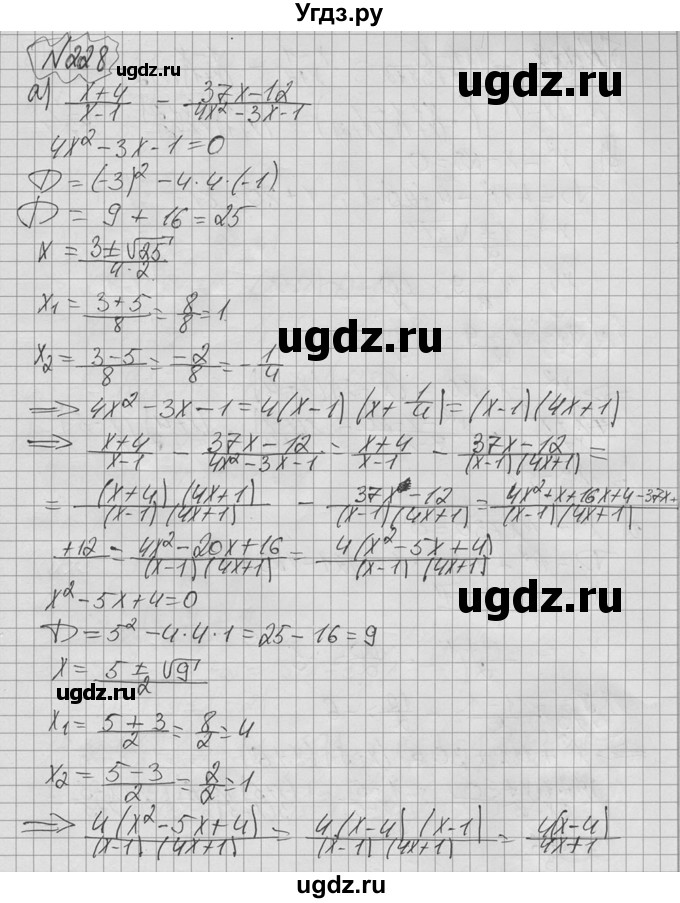 Угдз.ру
N228
ugdz.ru
ugdz.ru
а) (x+4)/(x-1) - (37x-12)/(4x²-3x-1)
4x²-3x-1=0
D=(-3)²-4·4·(-1)
ugdz.ru
D= 9+16=25
x = (3±√25)/(4·2)
x₁= (3+5)/8 = 8/8 =1
ugdz.ru
x₂= (3-5)/8 = -2/8 = -1/4
=> 4x²-3x-1=4(x-1)(x+1/4)=(x-1)(4x+1)
=> (x+4)/(x-1) - (37x-12)/(4x²-3x-1) = (x+4)/(x-1) - (37x-12)/((x-1)(4x+1)) =
ugdz.ru
= ((x+4)(4x+1))/((x-1)(4x+1)) - (37x-12)/((x-1)(4x+1)) = (4x²+x+16x+4-37x+)/((x-1)(4x+1))
+12 = (4x²-20x+16)/((x-1)(4x+1)) = 4(x²-5x+4)/((x-1)(4x+1))
x²-5x+4=0
ugdz.ru
D=5²-4·4·1=25-16=9
x= (5±√9)/2
ugdz.ru
x₁= (5+3)/2 = 8/2 =4
x₂= (5-3)/2 = 2/2 =1
ugdz.ru
=> 4(x²-5x+4)/((x-1)(4x+1)) = 4(x-4)(x-1)/((x-1)(4x+1)) = 4(x-4)/(4x+1)
ugdz.ru